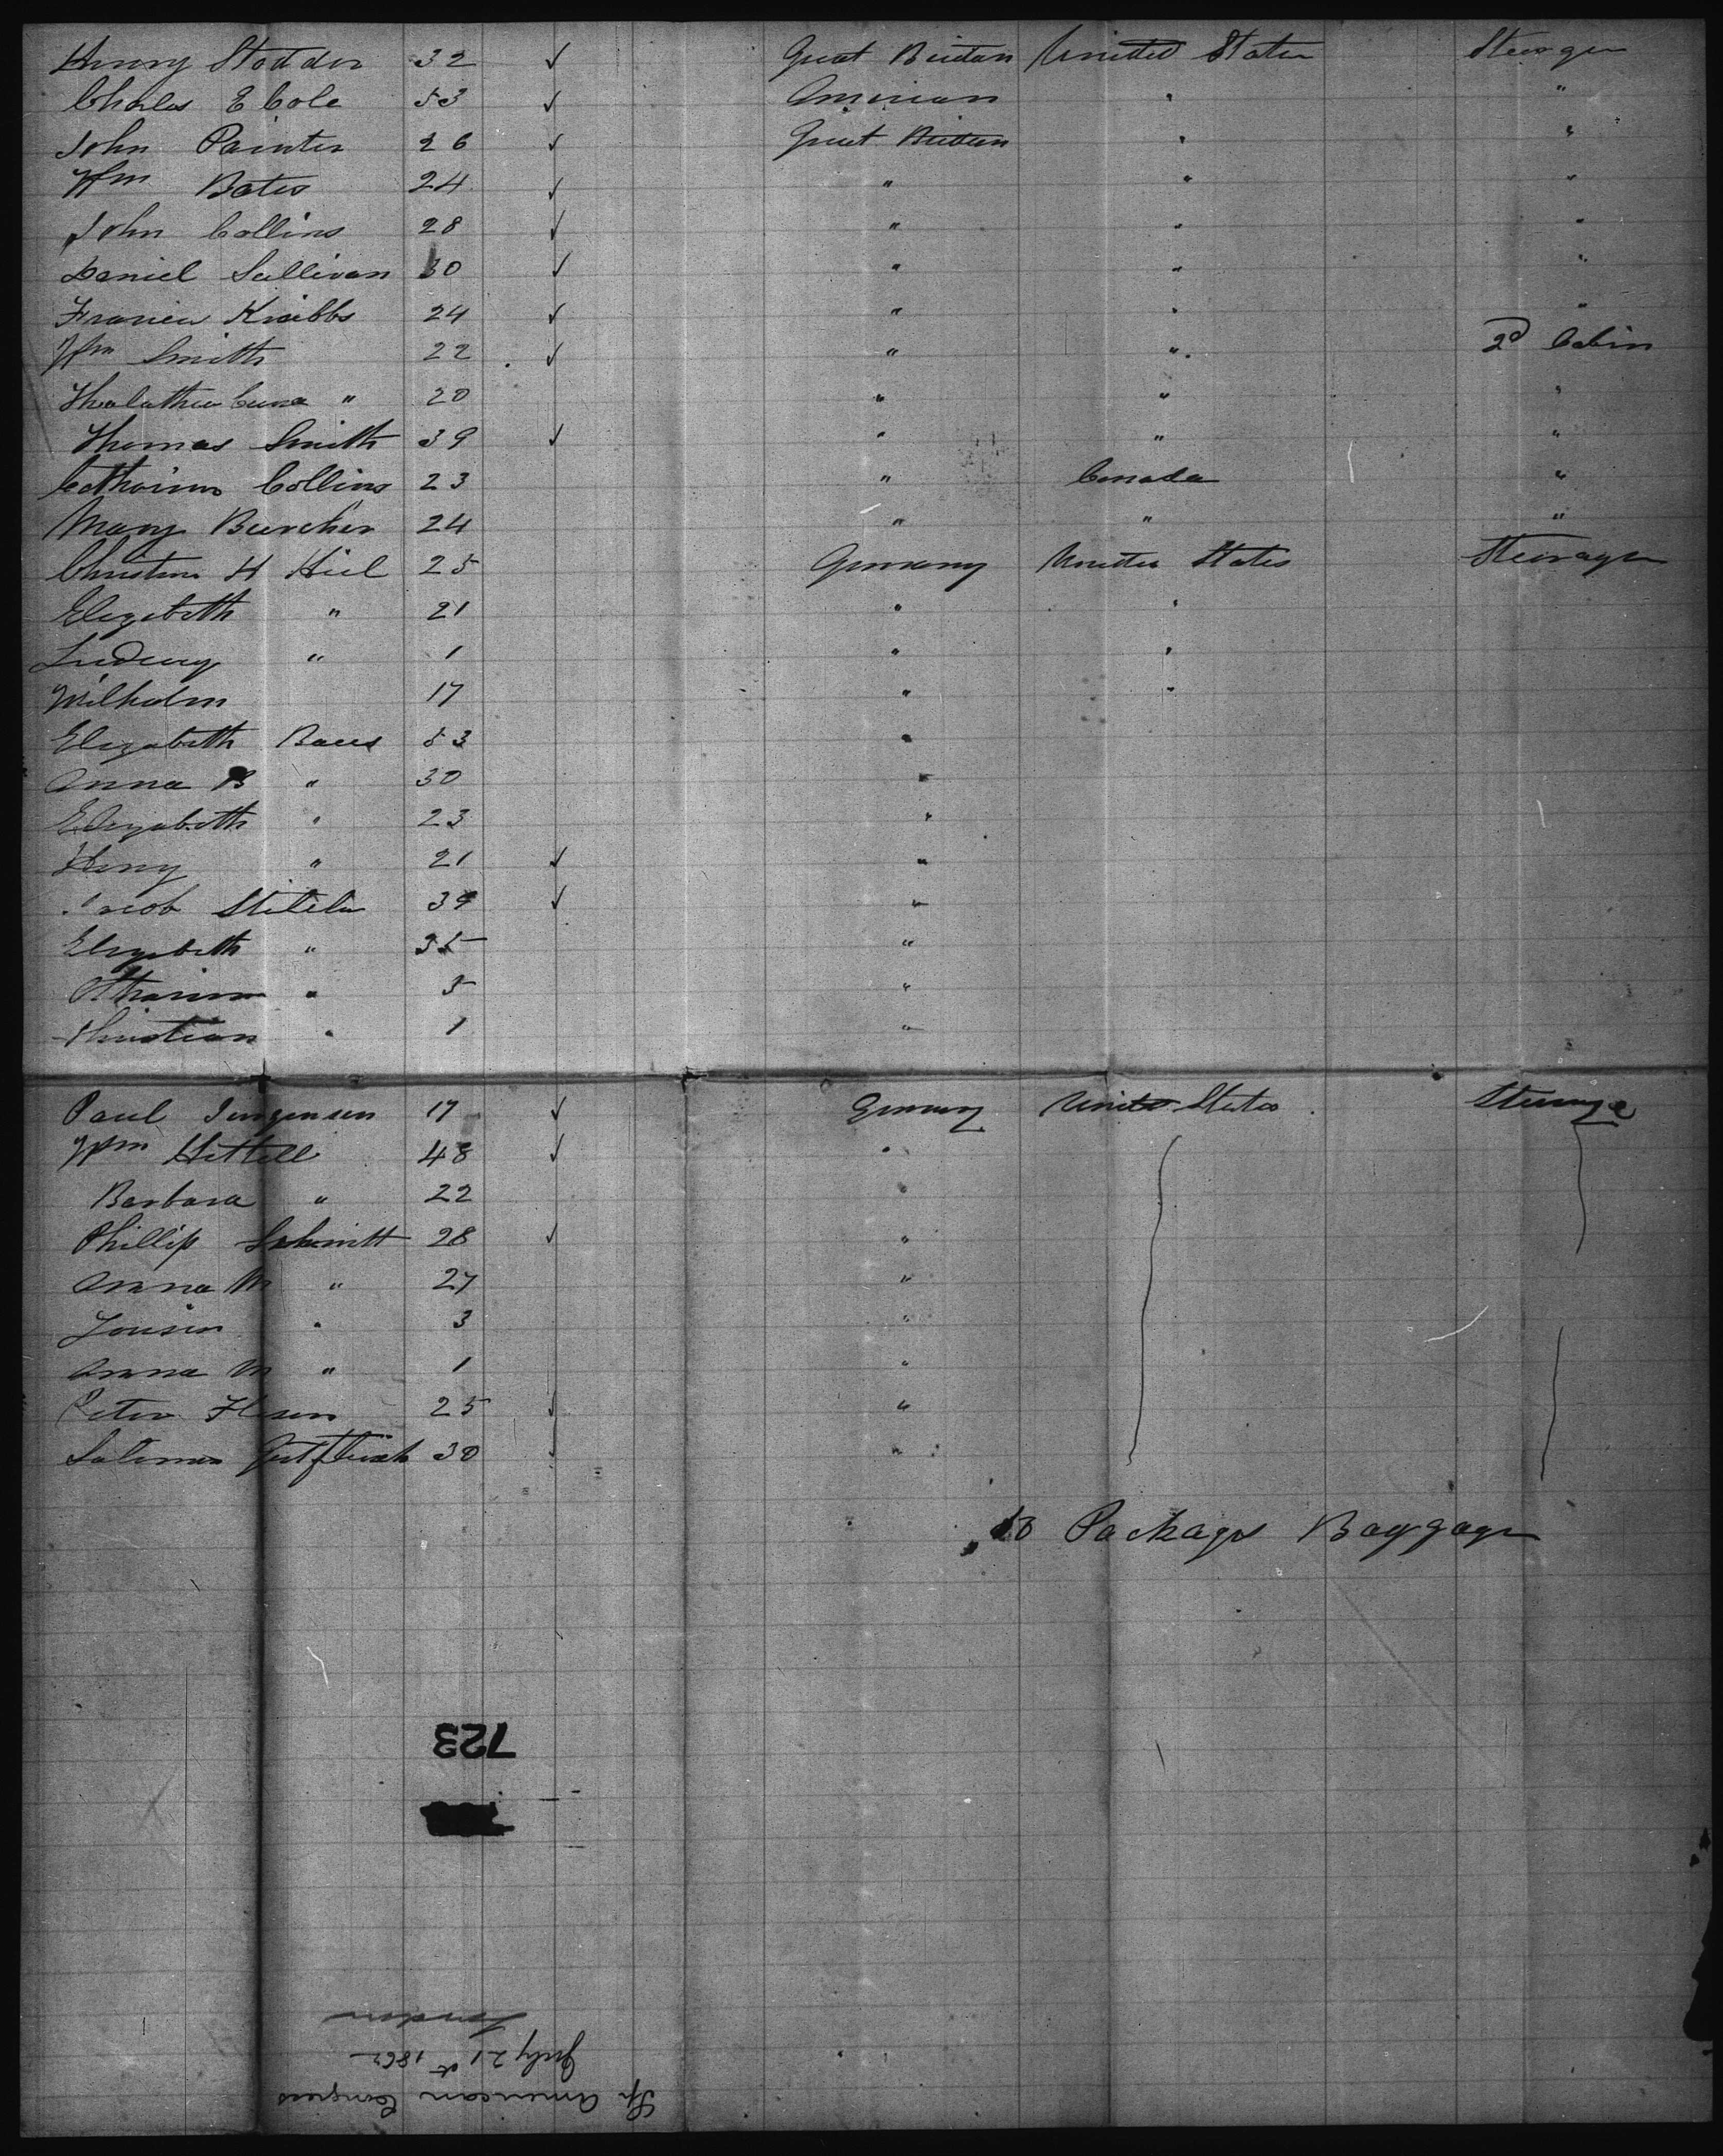 Henry Stodder 32 ✓ Great Britain United States Steerage
Charles E Cole 53 ✓ American " "
John Painter 26 ✓ Great Britain " "
Wm Bates 24 ✓ " " "
John Collins 28 ✓ " " "
Daniel Sullivan 30 ✓ " " "
Francis Knibbs 24 ✓ " " "
Wm Smith 22 ✓ " " 2d Cabin
" 20 " " "
Thomas Smith 39 ✓ " " "
Catharine Collins 23 " Canada "
Mary Burcher 24 " " "
H Hiel 25 Germany United States Steerage
Elizabeth " 21 " "
Ludwig " 1 " "
Wilhelm 17 " "
Elizabeth Baus 53 "
Anna B " 30 "
Elizabeth " 23 "
Henry " 21 ✓ "
Jacob 39 ✓ "
Elizabeth " 35 "
" 5 "
Christian " 1 "
Paul Jurgensen 17 ✓ Germany United States Steerage
Wm Hittell 48 ✓ "
Barbara " 22 "
Phillip Schmitt 28 ✓ "
Anna M " 27 "
" 3 "
Anna M " 1 "
Peter 25 ✓ "
30 "
Packages Baggage
723
London
July 21st 186
Sp American Congress